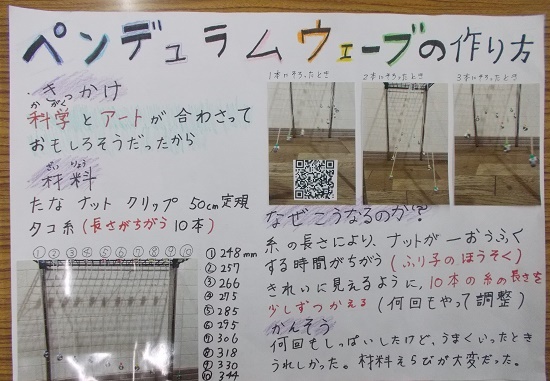 ペンデュラムウェーブの作り方
きっかけ
かがく
科学とアートが合わさって
おもしろそうだったから
ざいりょう
材料
たな ナット クリップ 50cm定規
タコ糸(長さがちがう10本)
① ② ③ ④ ⑤ ⑥ ⑦ ⑧ ⑨ ⑩
① 248mm
② 257
③ 266
④ 275
⑤ 285
⑥ 295
⑦ 306
⑧ 318
⑨ 330
⑩ 344
1本にそろったとき
2本にそろったとき
3本にそろったとき
なぜこうなるのか?
糸の長さにより、ナットが一おうふく
する時間がちがう(ふり子のほうそく)
きれいに見えるように、10本の糸の長さを
少しずつかえる(何回もやって調整)
かんそう
何回もしっぱいしたけど、うまくいったとき
うれしかった。材料えらびが大変だった。